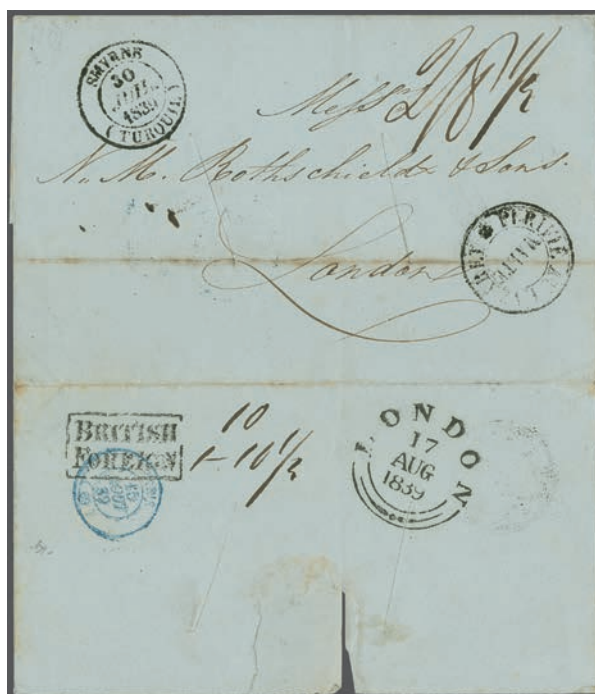 SMYRNE
30
JUIL.
1839
(TURQUIE)
2/8 1/2
Messrs
N. M. Rothschields & Sons.
London
PURIFIÉ AU LAZARET
MALTE
BRITISH
FOREIGN
10
1-10 1/2
LONDON
17
AUG
1839